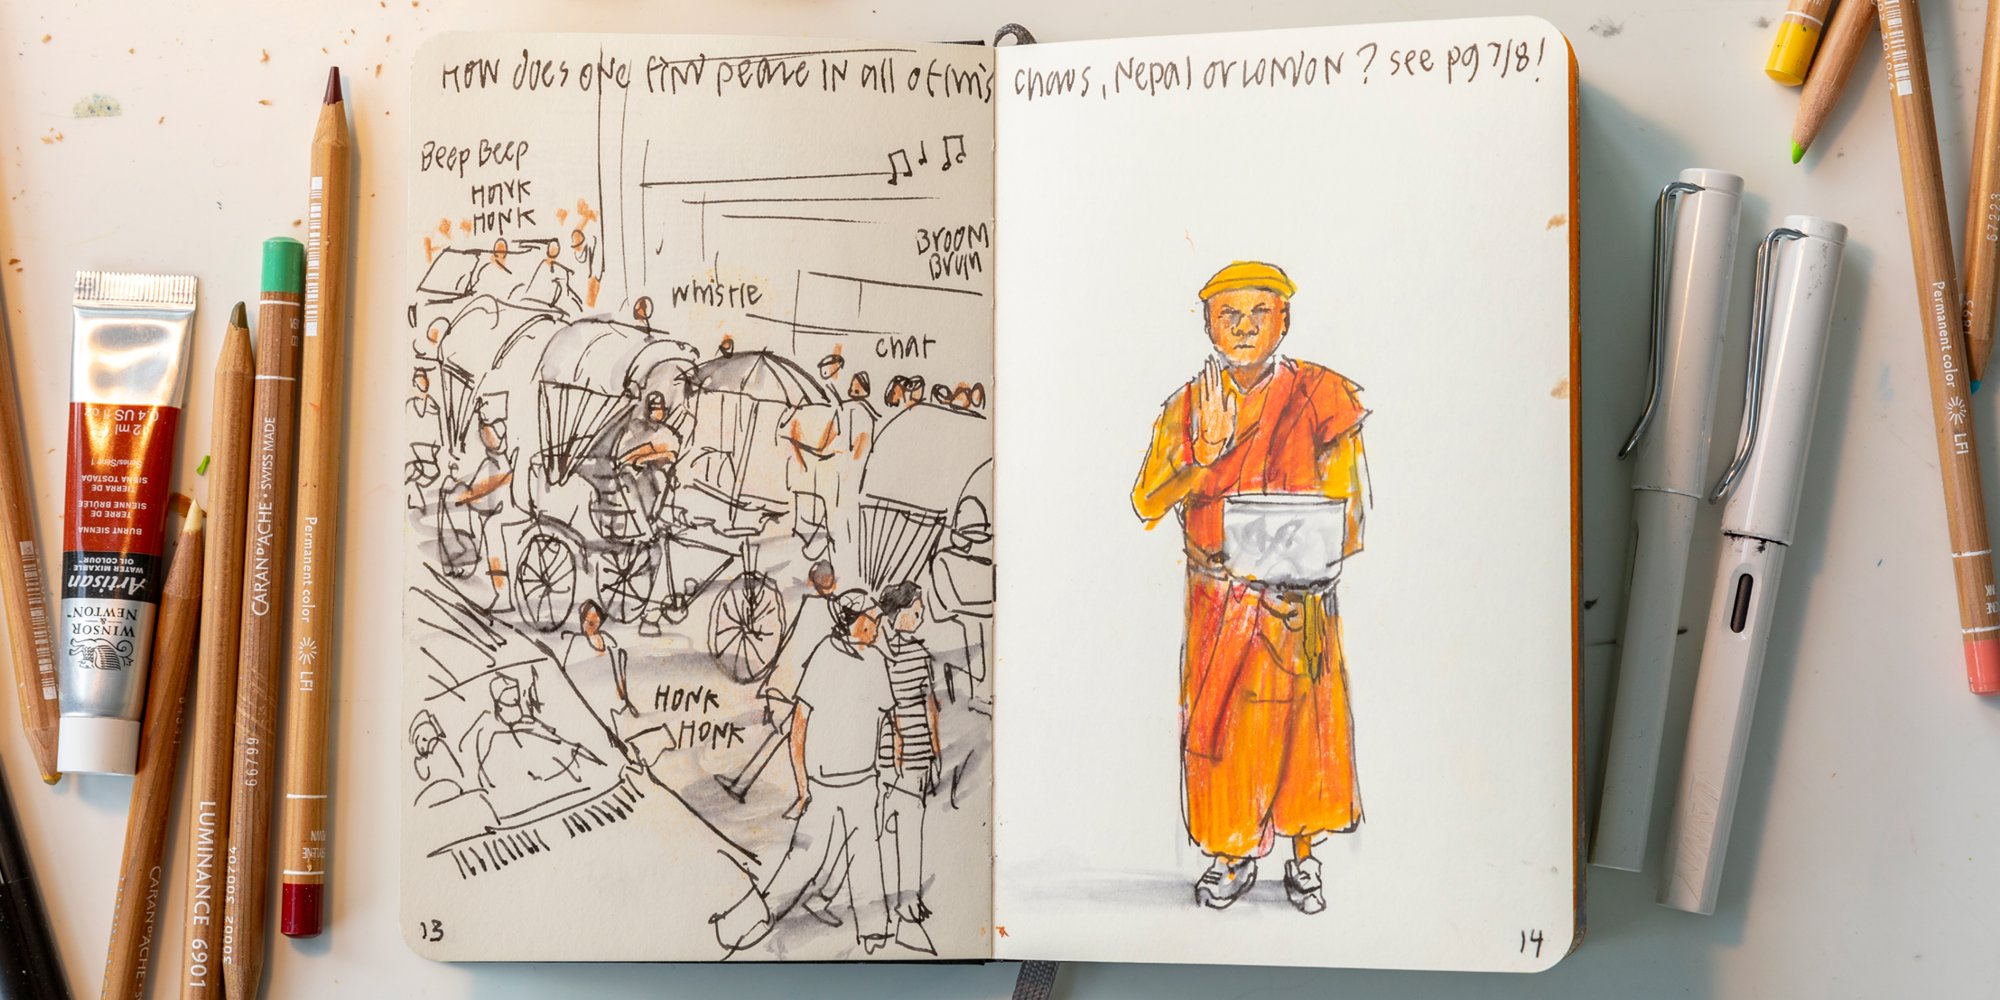 How does one find peace in all of this chaos, Nepal or London? see pg 7/8!
Beep Beep
HONK
HONK
BROOM
Brum
whistle
chat
HONK
HONK
13
14
12 ml e 0.4 US fl oz
Series/Série 1
SIENA TOSTADA
TIERRA DE
SIENNE BRÛLÉE
TERRE DE
BURNT SIENNA
Artisan
WATER MIXABLE
OIL COLOUR™
WINSOR
&
NEWTON™
CARAN D'ACHE • SWISS MADE
66799
Permanent color LFI
LUMINANCE 6901
CARAN D'ACHE
Permanent color LFI
67223
LAMY